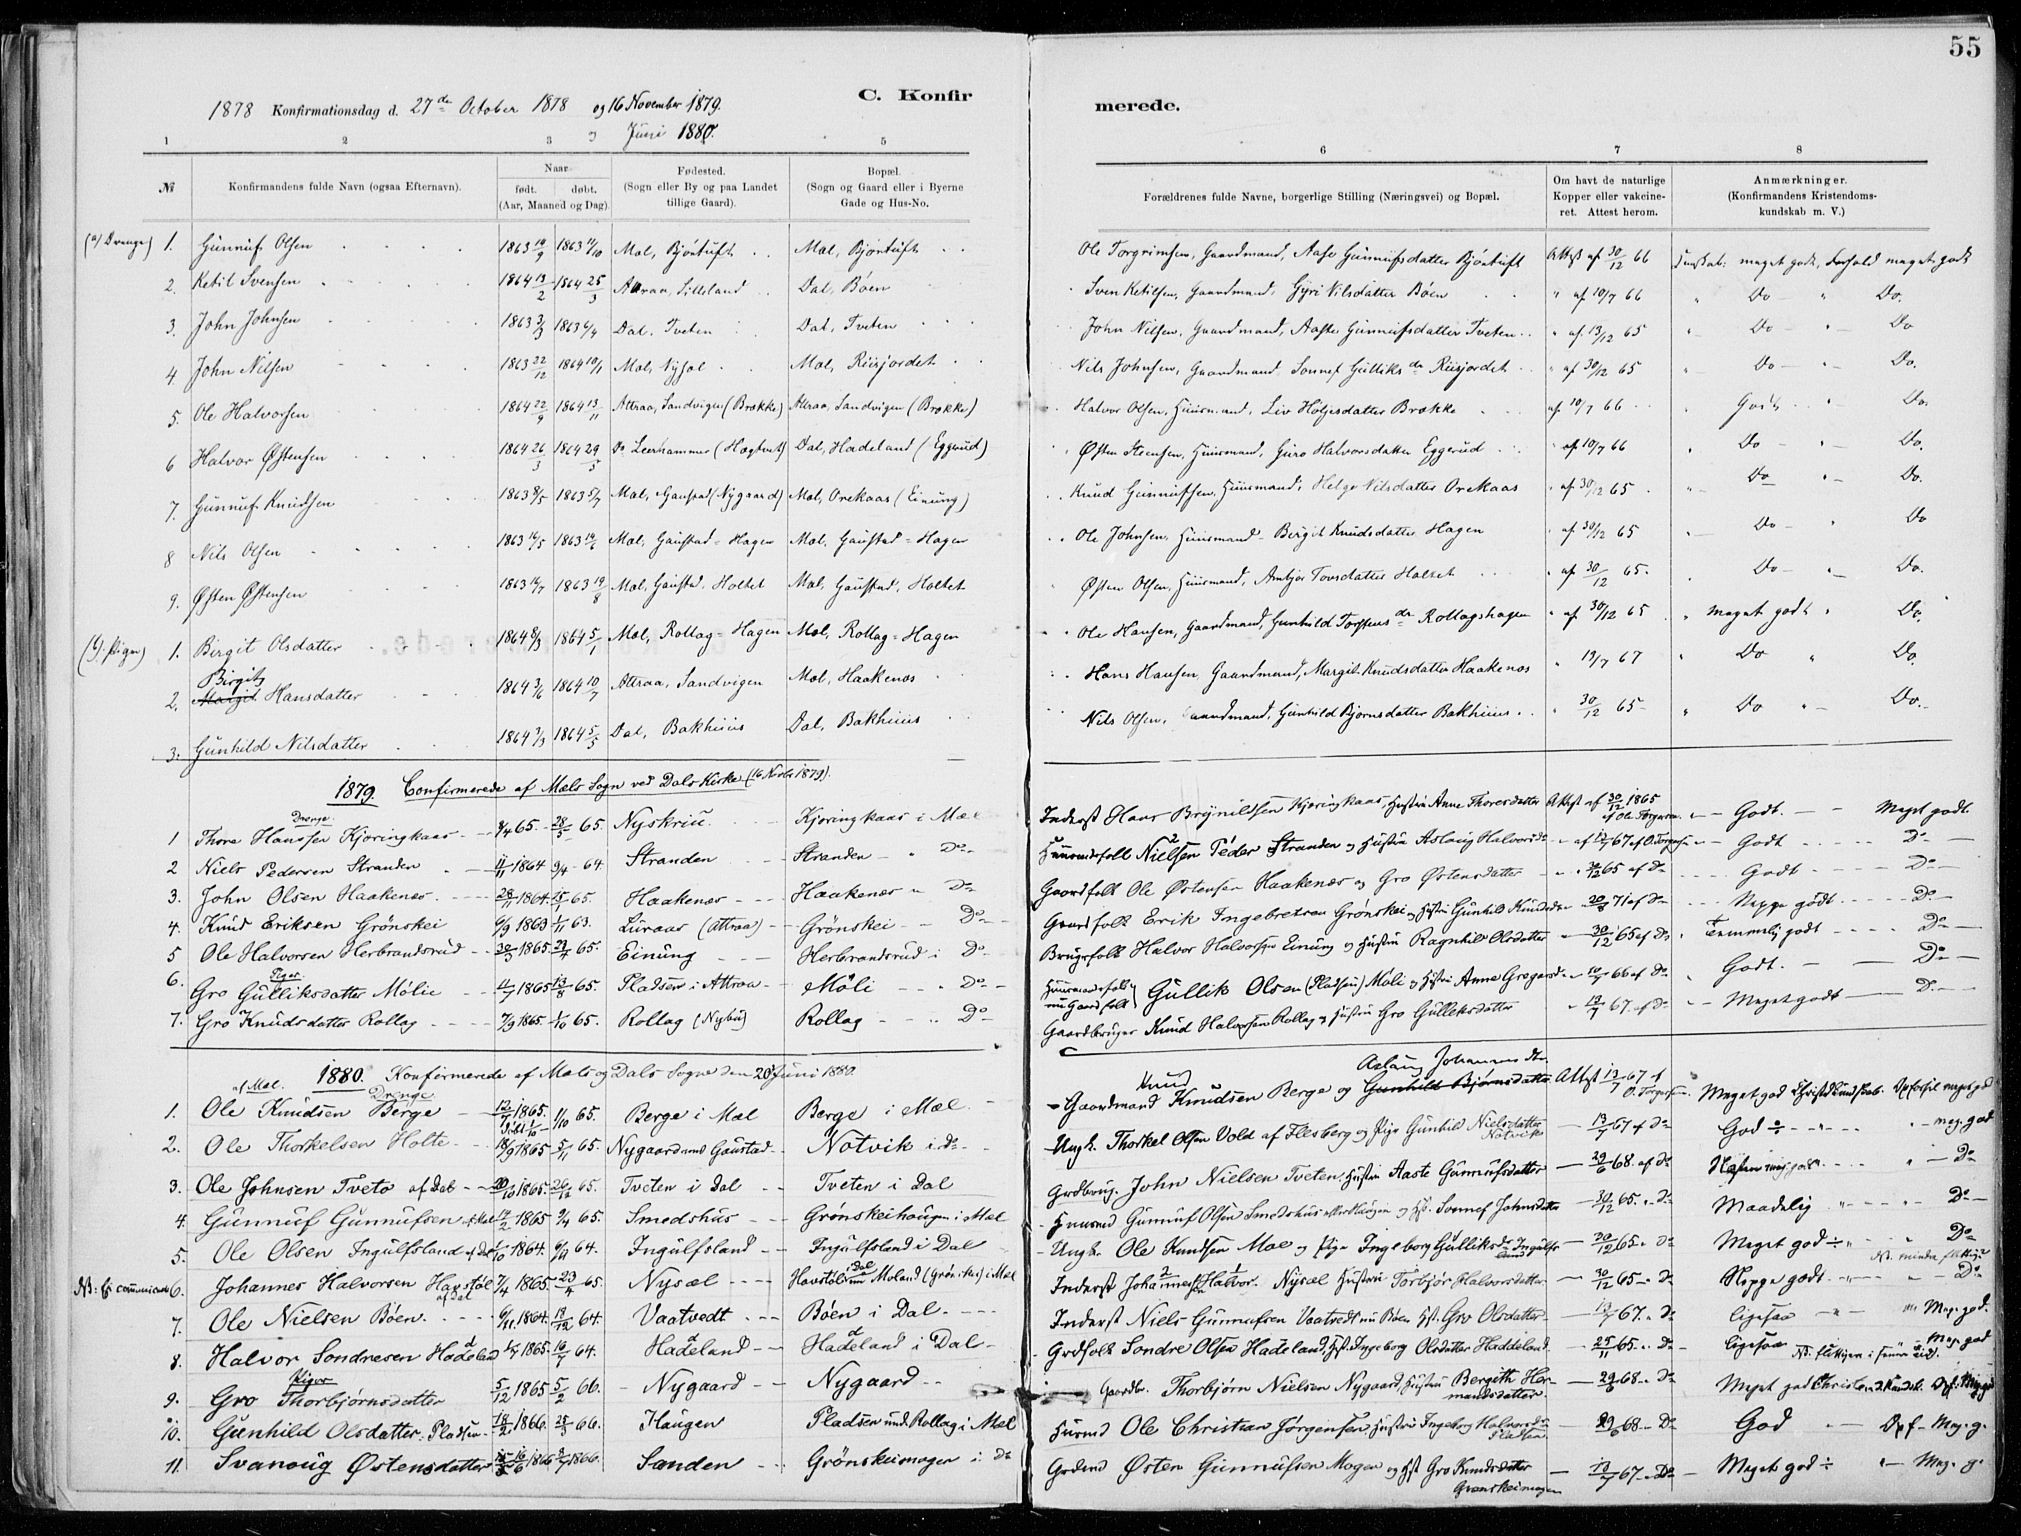 55
1878 Konfirmationsdag d. 27de October 1878 og 16 November 1879.
C. Konfir
merede.
Juni 1880.
1 2 3 5 6 7 8
№ Konfirmandens fulde Navn (ogsaa Efternavn).
Naar født. døbt. (Aar, Maaned og Dag).
Fødested. (Sogn eller By og paa Landet tillige Gaard).
Bopæl. (Sogn og Gaard eller i Byerne Gade og Hus-No.
Forældrenes fulde Navne, borgerlige Stilling (Næringsvei) og Bopæl.
Om havt de naturlige Kopper eller vakcineret. Attest herom.
Anmærkninger. (Konfirmandens Kristendomskundskab m. V.)
(a) Drenge) 1. Gunnuf Olsen 1863 19/9 1863 11/10 Mæl, Bjöntuft Mæl, Bjöntuft Ole Torgrimsen, Gaardmand, Aase Gunnufsdatter Bjöntuft Attest af 30/12 66 Kundskab: meget godt, Forhold meget godt
2. Ketil Svensen 1864 13/2 1864 25/3 Attraa, Lilleland Dal, Bøen Sven Ketilsen, Gaardmand, Gyri Nilsdatter Bøen " af 10/7 66 " Do " Do.
3. John Johnsen 1863 3/3 1863 6/4 Dal, Tveten Dal, Tveten John Nilsen, Gaardmand, Aaste Gunnufsdatter Tveten " af 13/12 65 " Do " Do
4 John Nilsen 1863 22/12 1864 10/1 Mæl, Nysæl Mæl, Riisjordet Nils Johnsen, Gaardmand Sonnef Gulliksdr Riisjordet " af 30/12 65 " Do " Do.
5. Ole Halvorsen 1864 22/9 1864 13/11 Attraa, Sandvigen (Brække) Attraa, Sandvigen (Brække) Halvor Olsen, Huusmand, Liv Holjesdatter Brække af 10/7 66 " Godt " Do.
6 Halvor Østensen 1864 26/3 1864 29/3 Do Leerhammer (Hægtvet) Dal, Hadeland (Eggerud) Østen Steensen, Huusmand, Guro Halvorsdatter Eggerud " af 10/7 66 " Do " Do.
7. Gunnuf Knudsen 1863 8/5 1863 5/7 Mæl, Gaustad (Nygaard) Mæl, Orekaas (Einung) Knud Gunnufsen, Huusmand, Helge Nilsdatter Orekaas " af 30/12 65 " Do " Do.
8 Nils Olsen 1863 14/5 1863 14/6 Mæl, Gaustad = Hagen Mæl, Gaustad = Hagen Ole Johnsen, Huusmand - Birgit Knudsdatter Hagen " af 30/12 65 " Do " Do
9. Østen Østensen 1863 14/7 1863 19/8 Mæl, Gaustad, Holtet Mæl, Gaustad, Holtet Østen Olsen, Huusmand, Ambjør Tovsdatter Holtet " af 30/12 65. " Do " Do.
(b) Piger) 1. Birgit Olsdatter 1864 8/3 1864 5/1 Mæl, Rollag = Hagen Mæl, Rollag = Hagen Ole Hansen, Gaardmand, Gunhild Torstensdr Rollagshagen " af 30/12 65 " meget godt " Do.
Birgit
2. Margit Hansdatter 1864 3/6 1864 10/7 Attraa, Sandvigen Mæl, Haakenæs Hans Hansen, Gaardmand, Margit Knudsdatter Haakenæs " 13/7 67 " Do " Do.
3. Gunhild Nilsdatter 1864 7/3 1864 5/5 Dal, Bakhuus Dal, Bakhuus Nils Olsen, Gaardmand, Gunhild Bjørnsdatter Bakhuus " 30/12 65 " Do " Do.
1879. Confirmerede af Mæls Sogn ved Dals Kirke (16 Novbr 1879).
Drenge
1 Thore Hanssen Kjøringkaas 8/4 65. 28/5 65. Nyskriu Kjøringkaas i Mæl Inderst Hans Brynildsen Kjøringkaas Hustru Anne Thoresdatter Attest af 30/12 1865 af Ole Torgersen Godt. Meget godt.
2 Niels Pedersen Stranden 11/11 1864 9/4 64. Stranden Stranden " Do Huusmandsfolk Nielsen Peder Stranden og Hustru Aslaug Halvorsdr af 13/7 67 af O. Torgersen Godt Do
3. John Olsen Haakenæs 28/11 1864. 15/1 65. Haakenæs Haakenæs " Do Gaardfolk Ole Østensen Haakenæs og Gro Østensdatter 30/12 65 af Do Godt Do
4. Knud Eriksen Grönskei 6/9 1863 1/11 63. Luraas (Attraa) Grönskei Do Gaardfolk Erik Ingebretsen Grønskei og Hustru Gunhild Knudsdr 20/8 71 af Do Neppe godt Do
5 Ole Halvorsen Herbrandsrud 28/3 1865. 23/4 65. Einung Herbrandsrud i Do Brugsfolk Halvor Halvorsen Einung og Hustru Ragnhild Olsdatter 30/12 65 af Do Temmelig godt Do
Piger.
6. Gro Gulliksdatter Mølie 11/7 1865 13/8 65. Pladsen i Attraa Møli Do Huusmandsfolk nu Gaardfolk Gullik Olsen (Pladsen) Møli og Hustru Anne Gregarsd. 10/7 66 af Do Godt. Do
7. Gro Knudsdatter Rollag 7/9 1865. 1/10 65. Rollag (Nybu) Rollag Do Gaardbruger Knud Halvorsen Rollag og Hustru Gro Gulliksdatter 13/7 67. af Do Meget godt Do
1880. Konfirmerede af Mæls og Dals Sogne den 20 Juni 1880.
af Mæl. Drenge
Knud Aslaug Johannesdr.
1. Ole Knudsen Berge 12/7 1865. 1/10 65. Berge i Mæl Berge i Mæl Gaardmand Knudsen Berge og Gunhild Bjørnsdatter Attest 13/7 67 af O. Torgersen Meget god Christ. Kundskab. Opførsel meget god
2. Ole Thorkelsen Holte 18/9 1865 5/11 65. Nygaard und. Gaustad Notvik i do Ungk. Thorkel Olsen Vold af Flesberg og Pige Gunhild Nielsdatter Notvik 13/7 67 af Do God meg. god
3. Ole Johnsen Tveto af Dal 1865. 26/12 65. Tveten i Dal Tveten i Dal Grdbrug. John Nielsen Tveten Hustru Aaste Gunnufsdatter 29/6 68. af Do Næsten meg. god Do
4. Gunnuf Gunnufsen af Mæl 14/2 1865 9/4 65. Smedshus Grønskeihaugen i Mæl Huusmd Gunnuf Olsen Smedshus og Hst. Sonnef Johnsdatter 30/12 65. Do Maadelig Do
5. Ole Olsen Ingulfsland af Dal 1/10 1864. 6/11 64. Ingulfsland Ingulfsland i Dal Ungk. Ole Knudsen Moe og Pige Ingeborg Gulliksdr Ingulfsland 30/12 65. Do Meget god Do
NB. mindre flittig
6. Johannes Halvorsen Havstøl af Dal 7/4 1865. 23/4 65. Nysæl Havstøl i Dal nu Moland (Grönskei) i Mæl Inderst Johannessen Halvor. Nysæl Hustru Torbjør Halvorsdatter 30/12 65. Do Neppe godt. Do
7. Ole Nielsen Bøen 6/11 1864. 18/12 64. Vaatvedt Bøen i Dal. Inderst Niels Gunnufsen Vaatvedt nu Bøen Hst. Gro Olsdatter 13/7 67. Do Ligesaa Meg. god.
8. Halvor Sondresen Hadeland 1/7 1865. 16/7 64. Hadeland Hadeland i Dal Grdfolk Sondre Olsen Hadeland, Hst. Ingeborg Olsdatter Haddeland 25/11 65. Do Ligesaa Meg. god
Piger
9. Gro Thorbjørnsdatter 5/12 1865 5/2 66. Nygaard Nygaard Gaardbr. Thorbjørn Nielsen Nygaard Hustru Bergith Hermandsdatter 29/6 68. Do Meget god Christend. Kundsk. Opf. Meg. god
10. Gunhild Olsdatter Pladsen 18/2 1866. 28/3 66. Haugen Pladsen und. Rollag i Mæl Husmd Ole Christian Jørgensen Hustru Ingeborg Halvorsdr Pladsen 29/6 68. Do God Opf. Meg. g.
11. Svanoug Østensdatter 16/6 1866 1866. Sanden Grønskeimogen i do Grdmd Østen Gunnufsen Mogen og Hst Gro Knudsdatter Grønskeimogen 13/7 67. Do Meget god Meg. g.